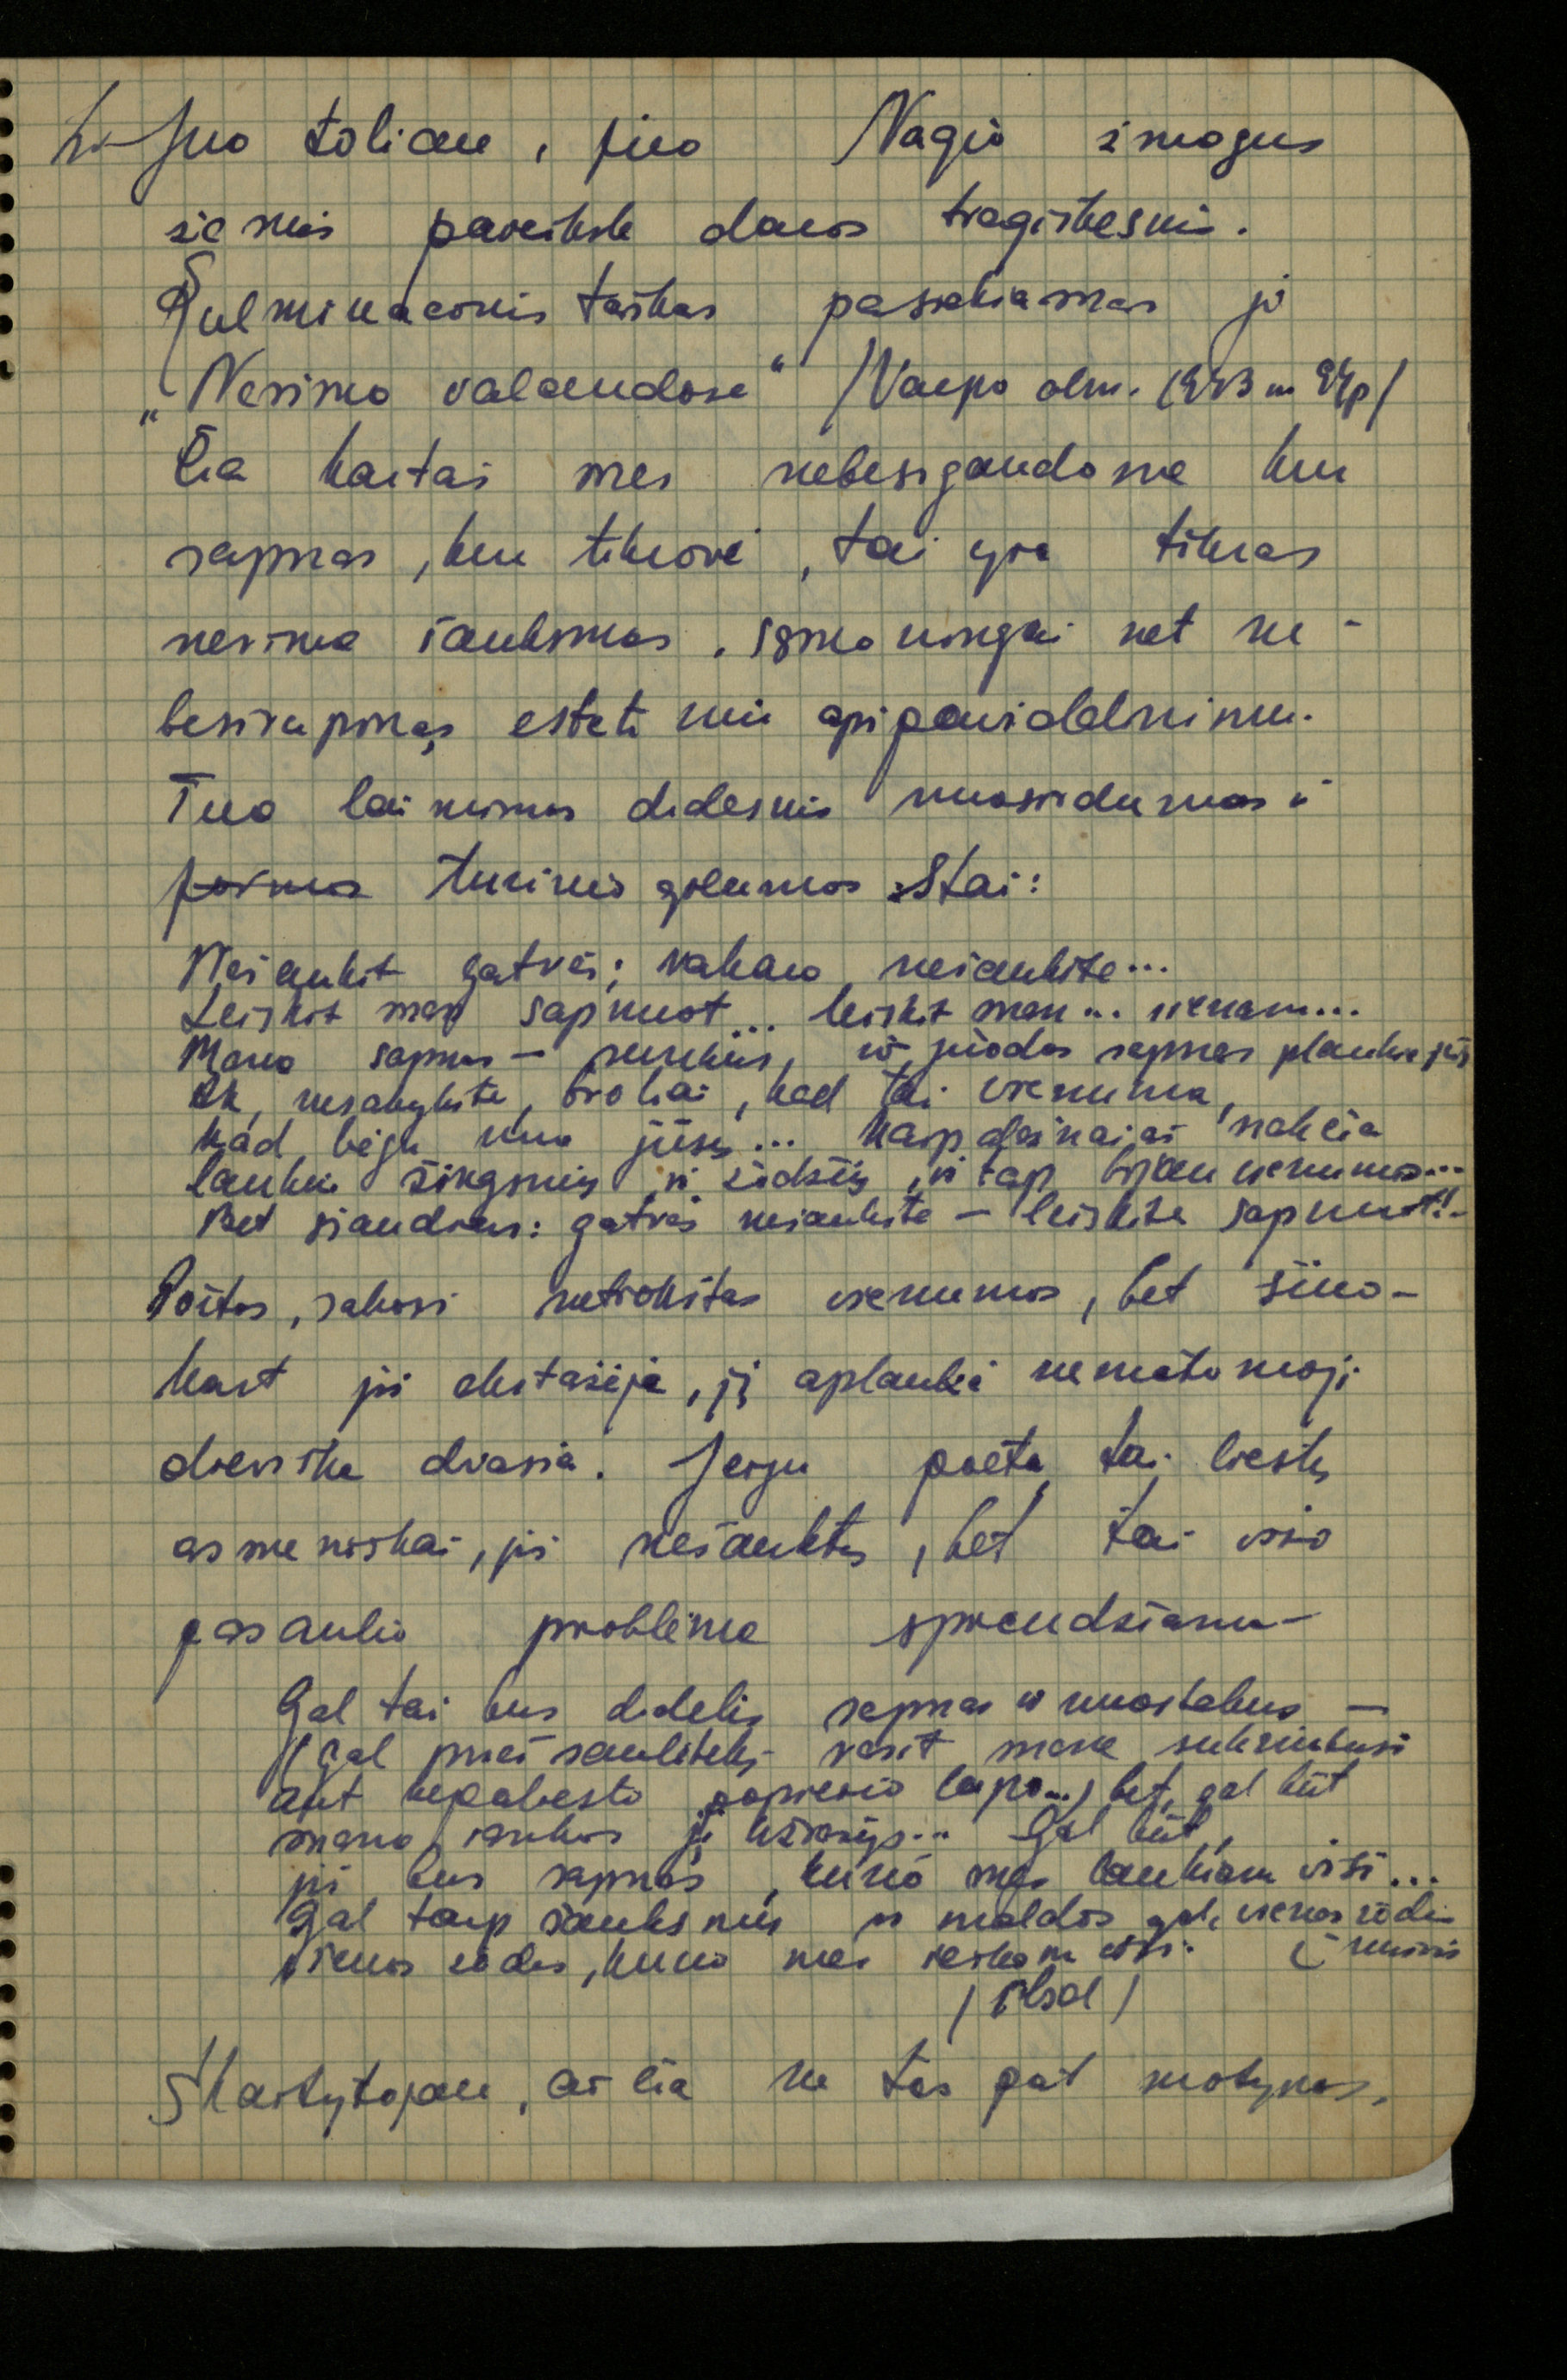 Juo toliau, juo Nagio žmogus
žemės paveiksle daros tragiškesnis.
Kulminacinis taškas pasiekiamas jo
„Nerimo valandose" /Varpo alm. 1943 m 94p/
Čia kartais mes nebesigaudome kur
sapnas, kur tikrovė, tai yra tikras
nerimo šauksmas, sąmoningai net ne-
besirūpinąs estetiniu apipavidalinimu.
Tuo laimimas didesnis nuoširdumas ir
forma turinio gilumas. Štai:
Nešaukit gatvės; vakaro nešaukite...
Leiskit man sapnuot... leiskit man... vienam...
Mano sapnas – sunkus, ir juodas sapnas plaukia jūs
Ak, nesakykite, broliai, kad tai vienuma,
kad bėgu nuo jūsų... kaip dešinioji nakčia
laukiu žingsnių ir žodžių, ir taip bijau vienumos...
Bet šiandien: gatvės nešaukite – leiskite sapnuot!..
Poetas, sakosi netrokštas vienumos, bet šiuo-
kart jis ekstazėje, jį aplankė nematomoji
dieviška dvasia. Jeigu poetą tai liestų
asmeniškai, jis nešauktų, bet tai viso
pasaulio problema sprendžiama –
Gal tai bus didelis sapnas ir nuostabus –
(gal prieš saulėtekį rasit mane suklupusį
ant nepabaigto popieriaus lapo...) bet, gal būt
mano rankos jį užrašys... Gal būt,
jis bus sapnas, kurio mes laukiam visi...
Gal taip šauksmų ir maldos gale vienas žodis
vienas žodis, kurio mes ieškom visi.
/Ibid/
Skaitytojau, ar čia ne tas pat motyvas,